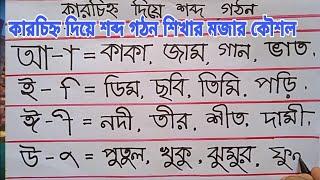 কারচিহ্ন দিয়ে শব্দ গঠন
কারচিহ্ন দিয়ে শব্দ গঠন শিখার মজার কৌশল
আ-া = কাকা, জাম, গান, ভাত,
ই-ি = ডিম, ছবি, তিমি, পড়ি,
ঈ-ী = নদী, তীর, শীত, দামী,
উ-ু = পুতুল, খুকু, ঝুমুর, ফুল